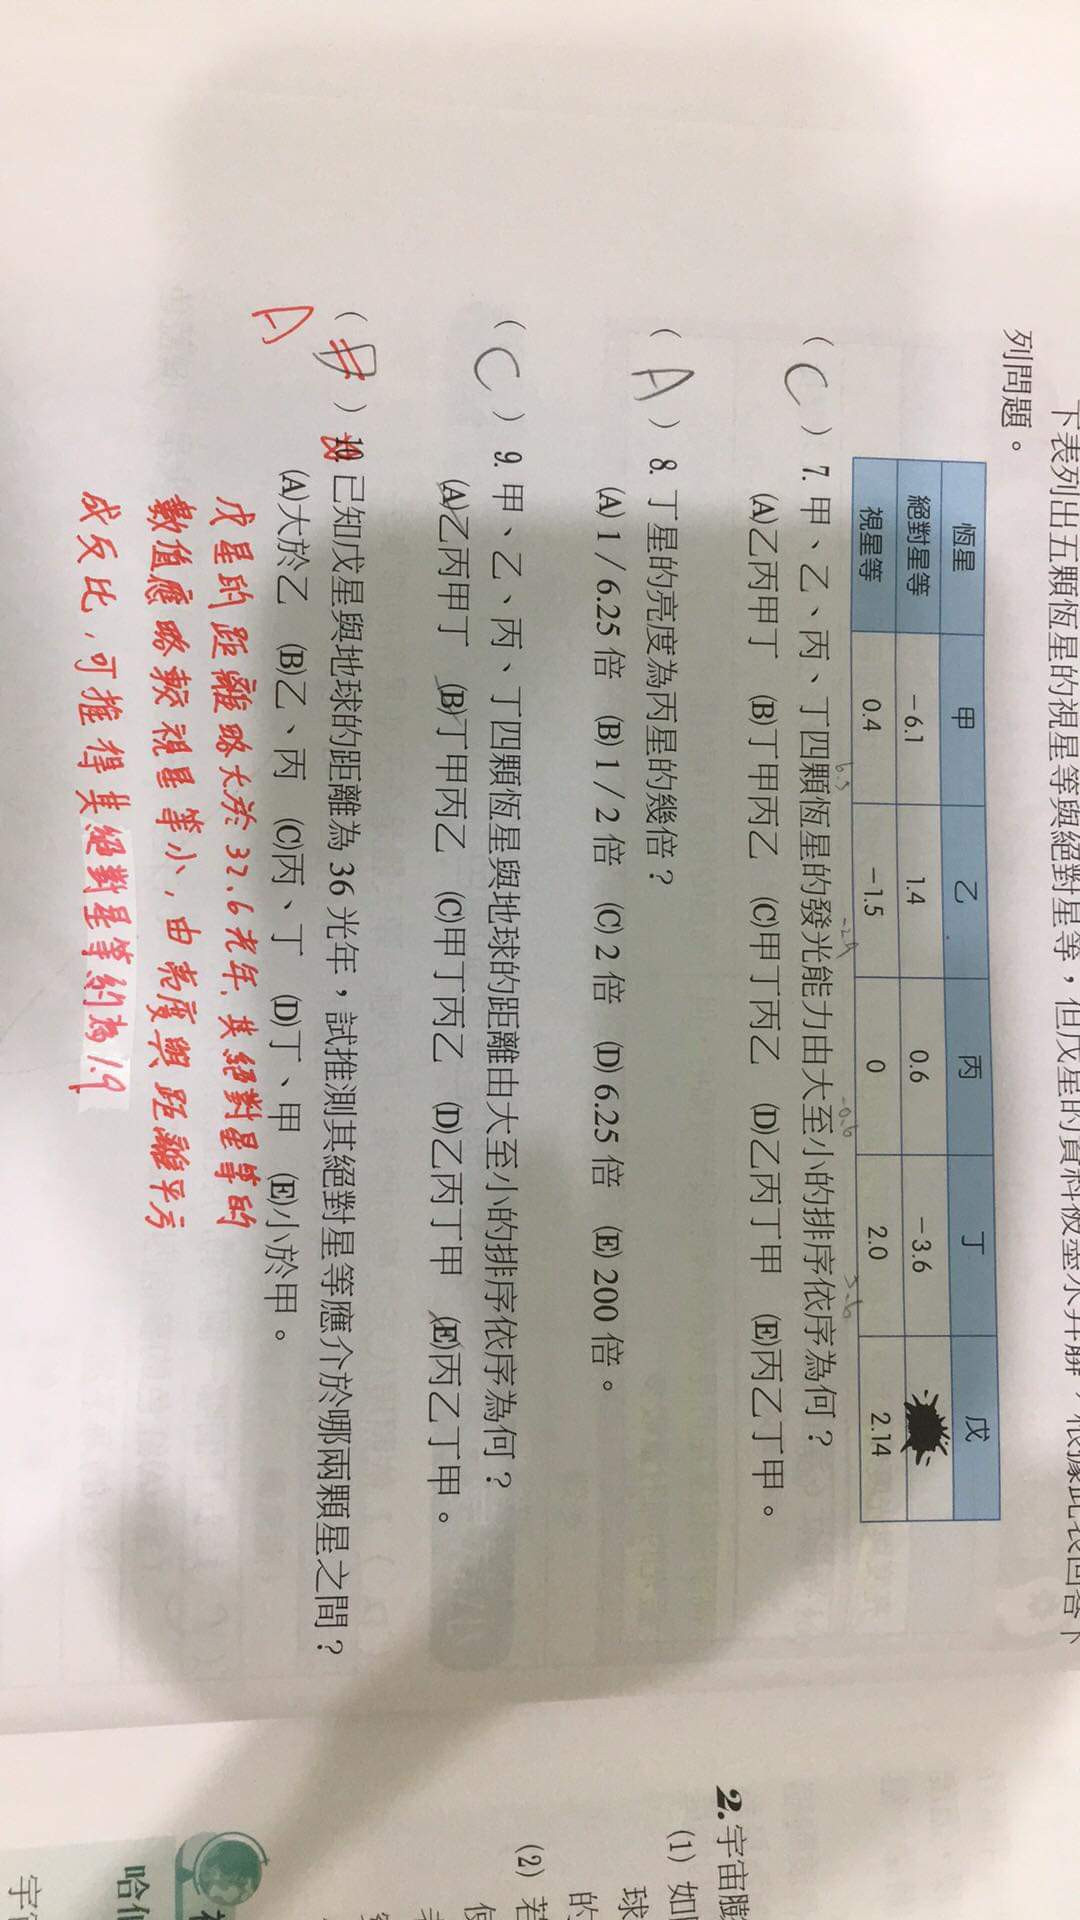 下表列出五顆恆星的視星等與絕對星等，但戊星的資料被墨水弄髒，根據此表回答下
列問題。
恆星 甲 乙 丙 丁 戊
絕對星等 −6.1 1.4 0.6 −3.6
視星等 0.4 −1.5 0 2.0 2.14
6.5 -2.9 -0.6 5.6
( C ) 7. 甲、乙、丙、丁四顆恆星的發光能力由大至小的排序依序為何？
(A)乙丙甲丁 (B)丁甲丙乙 (C)甲丁丙乙 (D)乙丙丁甲 (E)丙乙丁甲。
( A ) 8. 丁星的亮度為丙星的幾倍？
(A) 1 / 6.25 倍 (B) 1 / 2 倍 (C) 2 倍 (D) 6.25 倍 (E) 200 倍。
( C ) 9. 甲、乙、丙、丁四顆恆星與地球的距離由大至小的排序依序為何？
(A)乙丙甲丁 (B)丁甲丙乙 (C)甲丁丙乙 (D)乙丙丁甲 (E)丙乙丁甲。
( B ) 10. 已知戊星與地球的距離為 36 光年，試推測其絕對星等應介於哪兩顆星之間？
A
(A)大於乙 (B)乙、丙 (C)丙、丁 (D)丁、甲 (E)小於甲。
戊星的距離略大於 32.6 光年，其絕對星等的
數值應略較視星等小，由亮度與距離平方
成反比，可推得其絕對星等約為 1.9
2.宇宙膨
(1) 如
球
的
(2) 若
使
哈伯
宇宙